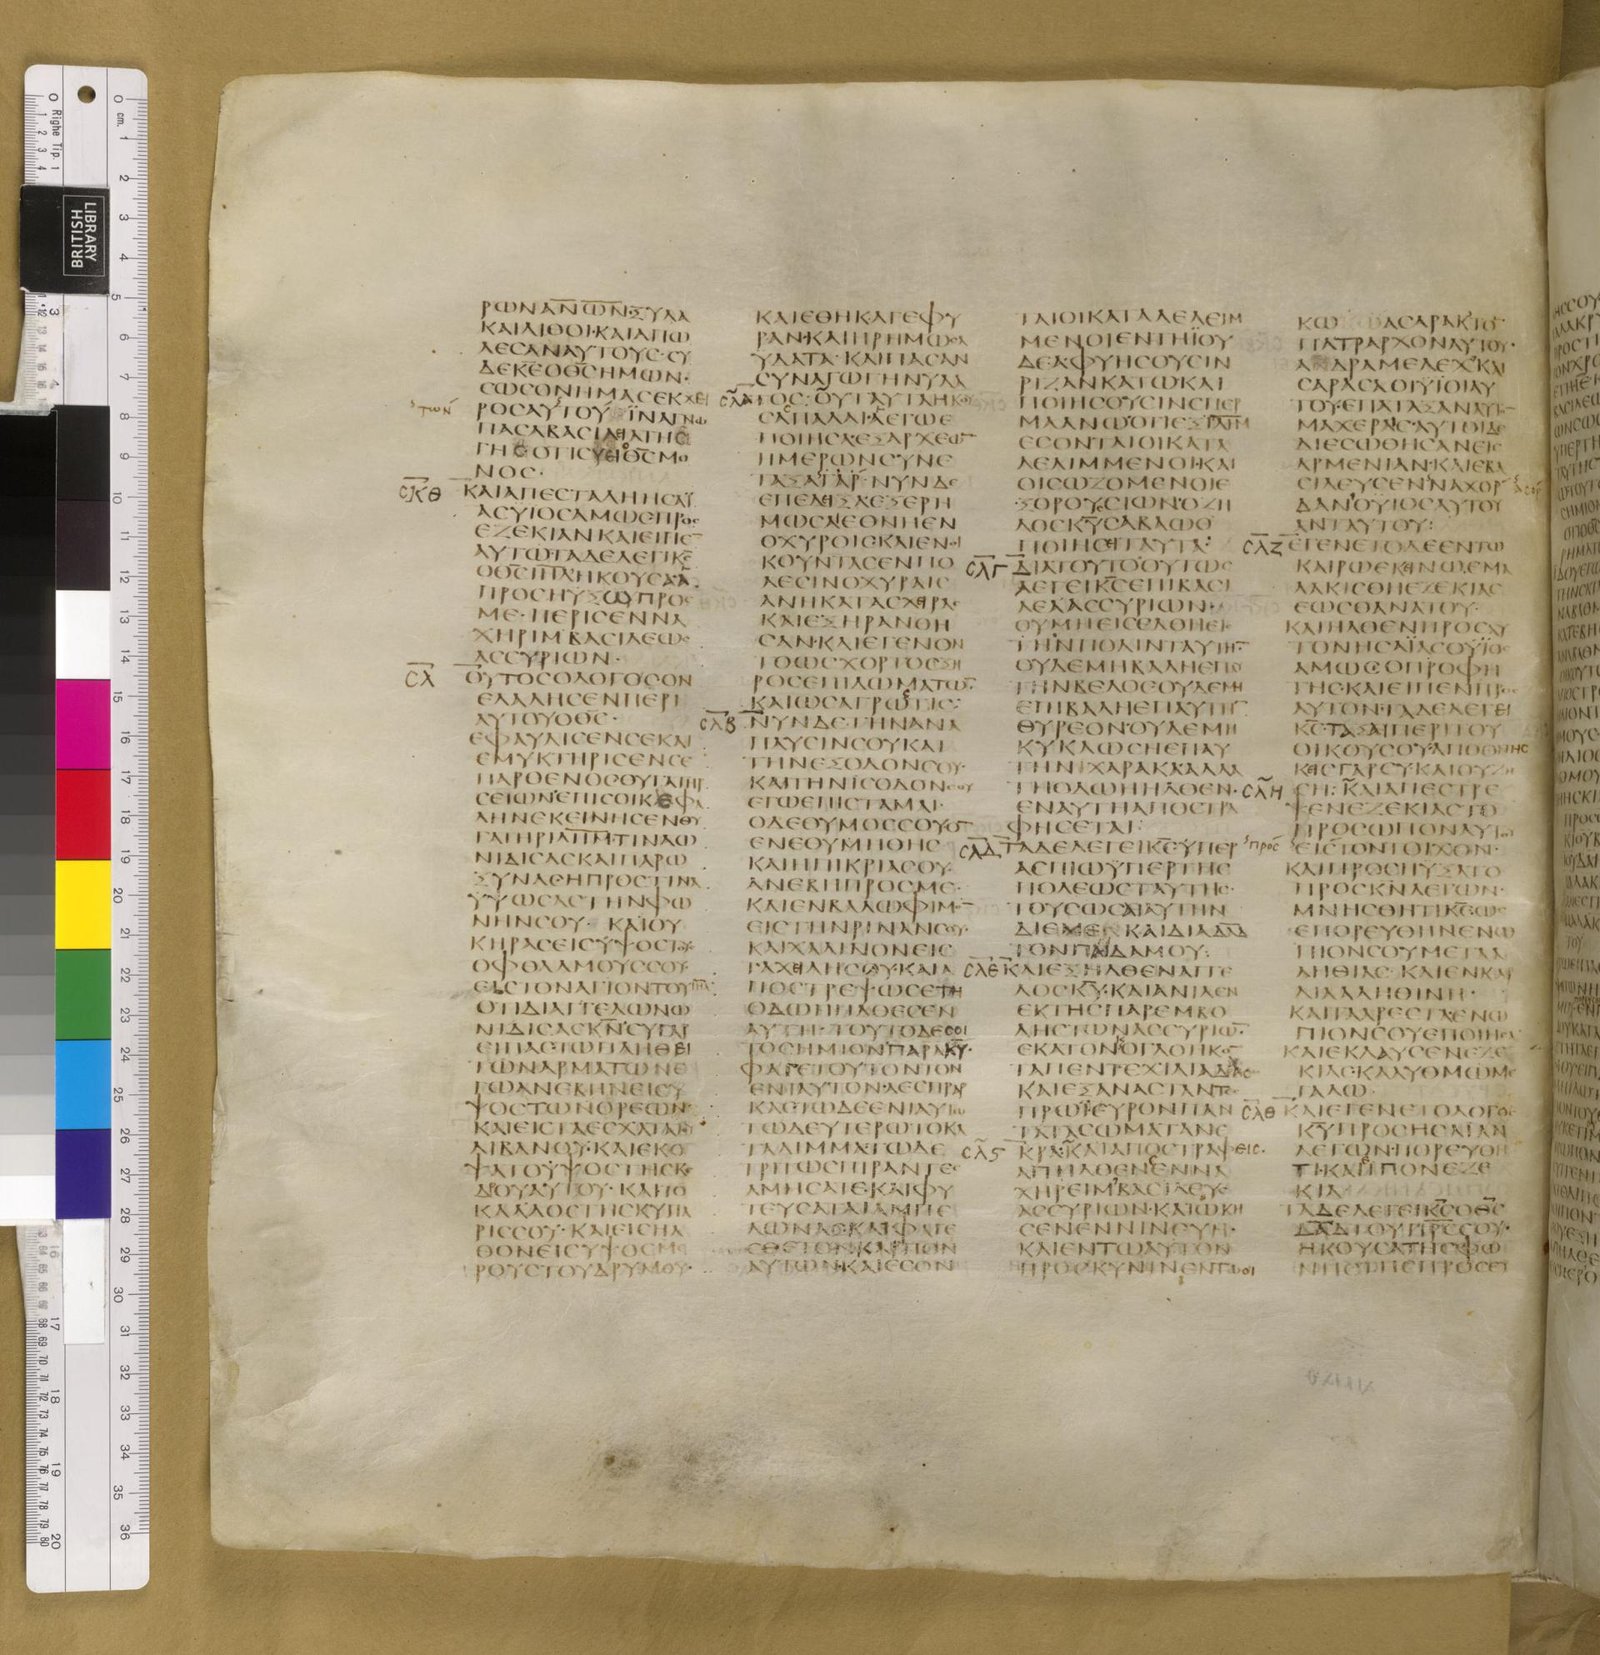 ΡΩΝΑΝΩΝ·ΞΥΛΑ
ΚΑΙΛΙΘΟΙ·ΚΑΙΑΠΩ
ΛΕΣΑΝΑΥΤΟΥΣ·ΣΥ
ΔΕΚΕΟΘΣΗΜΩΝ·
ΣΩΣΟΝΗΜΑΣΕΚΧΕΙ
ΡΟΣΑΥΤΟΥ ΪΝΑΓΝΩ
ΠΑΣΑΒΑΣΙΛΕΙΑΤΗΣ
ΓΗΣΟΤΙΣΥΕΙΟΘΣΜΟ
ΝΟΣ·
ΣΚΘ
ΚΑΙΑΠΕΣΤΑΛΗΗΣΑΪ
ΑΣΥΙΟΣΑΜΩΣΠΡΟΣ
ΕΖΕΚΙΑΝΚΑΙΕΙΠΕ
ΑΥΤΩ·ΤΑΔΕΛΕΓΙΚΣ
ΟΘΣΙΗΛΗΚΟΥΣΑΑ
ΠΡΟΣΗΥΞΩΠΡΟΣ
ΜΕ·ΠΕΡΙΣΕΝΝΑ
ΧΗΡΙΜΒΑΣΙΛΕΩΣ
ΑΣΣΥΡΙΩΝ·
ΣΛ
ΟΥΤΟΣΟΛΟΓΟΣΟΝ
ΕΛΑΛΗΣΕΝΠΕΡΙ
ΑΥΤΟΥΟΘΣ·
ΕΦΑΥΛΙΣΕΝΣΕΚΑΙ
ΕΜΥΚΤΗΡΙΣΕΝΣΕ
ΠΑΡΘΕΝΟΣΘΥΓΑΤΗΡ
ΣΕΙΩΝ·ΕΠΙΣΟΙΚΕΦΑ
ΛΗΝΕΚΕΙΝΗΣΕΝΘΥ
ΓΑΤΗΡΙΛΗΜ·ΤΙΝΑΩ
ΝΙΔΙΣΑΣΚΑΙΠΑΡΩ
ΞΥΝΑΣΗΠΡΟΣΤΙΝΑ
ΫΨΩΣΑΣΤΗΝΦΩ
ΝΗΝΣΟΥ· ΚΑΙΟΥ
ΚΗΡΑΣΕΙΣΥΨΟΣΤΟΥΣ
ΟΦΘΑΛΜΟΥΣΣΟΥ·
ΕΙΣΤΟΝΑΓΙΟΝΤΟΥΙΗΛ
ΟΤΙΔΙΑΓΓΕΛΩΝΩ
ΝΙΔΙΣΑΣΚΝ·ΣΥΓΑΡ
ΕΙΠΑΣ·ΤΩΠΛΗΘΕΙ
ΤΩΝΑΡΜΑΤΩΝΕ
ΓΩΑΝΕΒΗΝΕΙΣΥ
ΨΟΣΤΩΝΟΡΕΩΝ·
ΚΑΙΕΙΣΤΑΕΣΧΑΤΑΤΟΥ
ΛΙΒΑΝΟΥ·ΚΑΙΕΚΟ
ΨΑΤΟΥΨΟΣΤΗΣΚΕ
ΔΡΟΥΑΥΤΟΥ·ΚΑΙΤΟ
ΚΑΛΛΟΣΤΗΣΚΥΠΑ
ΡΙΣΣΟΥ·ΚΑΙΕΙΣΗΛ
ΘΟΝΕΙΣΥΨΟΣΜΕ
ΡΟΥΣΤΟΥΔΡΥΜΟΥ·
ΚΑΙΕΘΗΚΑΓΕΦΥ
ΡΑΝ·ΚΑΙΗΡΗΜΩΣΑ
ΥΔΑΤΑ·ΚΑΙΠΑΣΑΝ
ΣΥΝΑΓΩΓΗΝΥΔΑ
ΣΛΑ
ΤΟΣ:ΟΥΤΑΥΤΑΗΚΟΥ
ΣΑΠΑΛΑΙ·ΑΕΓΩΕ
ΠΟΙΗΣΑ·ΕΞΑΡΧΕΩΝ
ΗΜΕΡΩΝΣΥΝΕ
ΤΑΞΑΓΑΡ·ΝΥΝΔΕ
ΕΠΕΔΙΞΑΕΞΕΡΗ
ΜΩΣΑΙΕΘΝΗΕΝ
ΟΧΥΡΟΙΣΚΑΙΕΝΟΙ
ΚΟΥΝΤΑΣΕΝΠΟ
ΛΕΣΙΝΟΧΥΡΑΙΣ
ΑΝΗΚΑΤΑΣΧΕΙΡΑΣ
ΚΑΙΕΞΗΡΑΝΘΗ
ΣΑΝ·ΚΑΙΕΓΕΝΟΝ
ΤΟΩΣΧΟΡΤΟΣΞΗ
ΡΟΣΕΠΙΔΩΜΑΤΩΝ
ΚΑΙΩΣΑΓΡΩΣΤΙΣ:
ΣΛΒ
ΝΥΝΔΕΤΗΝΑΝΑ
ΠΑΥΣΙΝΣΟΥΚΑΙ
ΤΗΝΕΞΟΔΟΝΣΟΥ·
ΚΑΙΤΗΝΙΣΟΔΟΝΣΟΥ
ΕΓΩΕΠΙΣΤΑΜΑΙ·
ΟΔΕΘΥΜΟΣΣΟΥΟΝ
ΕΝΕΘΥΜΗΘΗΣ
ΚΑΙΗΠΙΚΡΙΑΣΟΥ·
ΑΝΕΒΗΠΡΟΣΜΕ·
ΚΑΙΕΝΒΑΛΩΦΙΜΟΝ
ΕΙΣΤΗΝΡΙΝΑΝΣΟΥ·
ΚΑΙΧΑΛΙΝΟΝΕΙΣ
ΤΑΧΕΙΛΗΣΟΥ·ΚΑΙΑ
ΠΟΣΤΡΕΨΩΣΕΤΗ
ΟΔΩΗΗΛΘΕΣΕΝ
ΑΥΤΗ·ΤΟΥΤΟΔΕΣΟΙ
ΤΟΣΗΜΙΟΝΠΑΡΑΚΥ·
ΦΑΓΕΤΟΥΤΟΝΤΟΝ
ΕΝΙΑΥΤΟΝΑΕΣΠΑΡ
ΚΑΣ·ΤΩΔΕΕΝΙΑΥΤΩ
ΤΩΔΕΥΤΕΡΩΤΟΚΑ
ΤΑΛΙΜΜΑ·ΤΩΔΕ
ΤΡΙΤΩΣΠΙΡΑΝΤΕΣ
ΑΜΗΣΑΤΕ·ΚΑΙΦΥ
ΤΕΥΣΑΤΑΙΑΜΠΕ
ΛΩΝΑΣ·ΚΑΙΦΑΓΕ
ΣΘΕΤΟΝΚΑΡΠΟΝ
ΑΥΤΩΝ·ΚΑΙΕΣΟΝ
ΤΑΙΟΙΚΑΤΑΛΕΛΕΙΜ
ΜΕΝΟΙΕΝΤΗΪΟΥ
ΔΕΑ·ΦΥΗΣΟΥΣΙΝ
ΡΙΖΑΝΚΑΤΩΚΑΙ
ΠΟΙΗΣΟΥΣΙΝΣΠΕΡ
ΜΑΑΝΩΟΤΙΕΞΙΛΗΜ
ΕΣΟΝΤΑΙΟΙΚΑΤΑ
ΛΕΛΙΜΜΕΝΟΙ·ΚΑΙ
ΟΙΣΩΖΟΜΕΝΟΙΕ
ΞΟΡΟΥΣΣΙΩΝ·ΟΖΗ
ΛΟΣΚΥΣΑΒΑΩΘ
ΠΟΙΗΣΕΙΤΑΥΤΑ:
ΣΛΓ
ΔΙΑΤΟΥΤΟΟΥΤΩΣ
ΛΕΓΕΙΚΣΕΠΙΒΑΣΙ
ΛΕΑΑΣΣΥΡΙΩΝ·
ΟΥΜΗΕΙΣΕΛΘΗΕΙΣ
ΤΗΝΠΟΛΙΝΤΑΥΤΗΝ
ΟΥΔΕΜΗΒΑΛΗΕΠΑΥ
ΤΗΝΒΕΛΟΣΟΥΔΕΜΗ
ΕΠΙΒΑΛΗΕΠΑΥΤΗΝ
ΘΥΡΕΟΝ·ΟΥΔΕΜΗ
ΚΥΚΛΩΣΗΕΠΑΥ
ΤΗΝΙΧΑΡΑΚΑ·ΑΛΛΑ
ΤΗΟΔΩΗΗΛΘΕΝ·
ΕΝΑΥΤΗΑΠΟΣΤΡΑ
ΦΗΣΕΤΑΙ:
ΣΛΔ
ΤΑΔΕΛΕΓΕΙΚΣ·ΥΠΕΡ
ΑΣΠΙΩΥΠΕΡΤΗΣ
ΠΟΛΕΩΣΤΑΥΤΗΣ·
ΤΟΥΣΩΣΑΙΑΥΤΗΝ
ΔΙΕΜΕ ΚΑΙΔΙΑΔΑΔ
ΤΟΝΠΑΙΔΑΜΟΥ:
ΣΛΕ
ΚΑΙΕΞΗΛΘΕΝΑΓΓΕ
ΛΟΣΚΥ·ΚΑΙΑΝΙΛΕΝ
ΕΚΤΗΣΠΑΡΕΜΒΟ
ΛΗΣΤΩΝΑΣΣΥΡΙΩΝ·
ΕΚΑΤΟΝΟΓΔΟΗΚΟΝ
ΤΑΠΕΝΤΕΧΙΛΙΑΔΑΣ·
ΚΑΙΕΞΑΝΑΣΤΑΝΤΕΣ
ΠΡΩΪΕΥΡΟΝΠΑΝ
ΤΑΤΑΣΩΜΑΤΑΝΕ
ΣΛϚ
ΚΡΑ·ΚΑΙΑΠΟΣΤΡΑΦΕΙΣ·
ΑΠΗΛΘΕΝΣΕΝΝΑ
ΧΗΡΕΙΜΒΑΣΙΛΕΥΣ·
ΑΣΣΥΡΙΩΝ·ΚΑΙΩΚΗ
ΣΕΝΕΝΝΙΝΕΥΗ·
ΚΑΙΕΝΤΩΑΥΤΟΝ
ΠΡΟΣΚΥΝΙΝΕΝΤΩΟΙ
ΚΩ ΑΣΑΡΑΚΤΟ
ΠΑΤΡΑΡΧΟΝΑΥΤΟΥ·
Α ΔΡΑΜΕΛΕΧΚΑΙ
ΣΑΡΑΣΑΟΙΥΪΟΙΑΥ
ΤΟΥ·ΕΠΑΤΑΞΑΝΑΥΤΟΝ
ΜΑΧΕΡΑΙΣΑΥΤΟΙΔΕ
ΔΙΕΣΩΘΗΣΑΝΕΙΣ
ΑΡΜΕΝΙΑΝ·ΚΑΙΕΒΑ
ΣΙΛΕΥΣΕΝΝΑΧΟΡ
ΔΑΝΟΥΙΟΣΑΥΤΟΥ
ΑΝΤΑΥΤΟΥ:
ΣΛΖ
ΕΓΕΝΕΤΟΔΕΕΝΤΩ
ΚΑΙΡΩΕΚΕΙΝΩ·ΕΜΑ
ΛΑΚΙΣΘΗΕΖΕΚΙΑΣ
ΕΩΣΘΑΝΑΤΟΥ·
ΚΑΙΗΛΘΕΝΠΡΟΣΑΥ
ΤΟΝΗΣΑΪΑΣΟΥΪΟΣ
ΑΜΩΣΟΠΡΟΦΗ
ΤΗΣ·ΚΑΙΕΙΠΕΝΠΡΟΣ
ΑΥΤΟΝ·ΤΑΔΕΛΕΓΕΙ
ΚΣ·ΤΑΞΑΙΠΕΡΙΤΟΥ
ΟΙΚΟΥΣΟΥ·ΑΠΟΘΝΗΣ
ΚΕΙΣΓΑΡΣΥ·ΚΑΙΟΥΖΗ
ΣΛΗ
ΣΗ:ΚΑΙΑΠΕΣΤΡΕ
ΨΕΝΕΖΕΚΙΑΣΤΟ
ΠΡΟΣΩΠΟΝΑΥΤΟΥ
ΠΡΟΣ ΕΙΣΤΟΝΤΟΙΧΟΝ·
ΚΑΙΠΡΟΣΗΥΞΑΤΟ
ΠΡΟΣΚΝΛΕΓΩΝ·
ΜΝΗΣΘΗΤΙΚΕΩΣ
ΕΠΟΡΕΥΘΗΝΕΝΩ
ΠΙΟΝΣΟΥΜΕΤΑΑ
ΛΗΘΙΑΣ·ΚΑΙΕΝΚΑΡ
ΔΙΑΑΛΗΘΙΝΗ·
ΚΑΙΤΑΑΡΕΣΤΑΕΝΩ
ΠΙΟΝΣΟΥΕΠΟΙΗΣΑ
ΚΑΙΕΚΛΑΥΣΕΝΕΖΕ
ΚΙΑΣ·ΚΛΑΥΘΜΩΜΕ
ΓΑΛΩ·
ΣΛΘ
ΚΑΙΕΓΕΝΕΤΟΛΟΓΟΣ
ΚΥΠΡΟΣΗΣΑΪΑΝ
ΛΕΓΩΝ·ΠΟΡΕΥΟΥ
ΤΙ·ΚΑΙΕΙΠΟΝΕΖΕ
ΚΙΑ
ΤΑΔΕΛΕΓΕΙΚΣΟΘΣ
ΔΑΔΤΟΥΠΡΣΣΟΥ·
ΗΚΟΥΣΑΤΗΣΦΩ
ΝΗΣΤΗΣΠΡΟΣΕΥ
BRITISH
LIBRARY
Righe Tip. 1
cm.